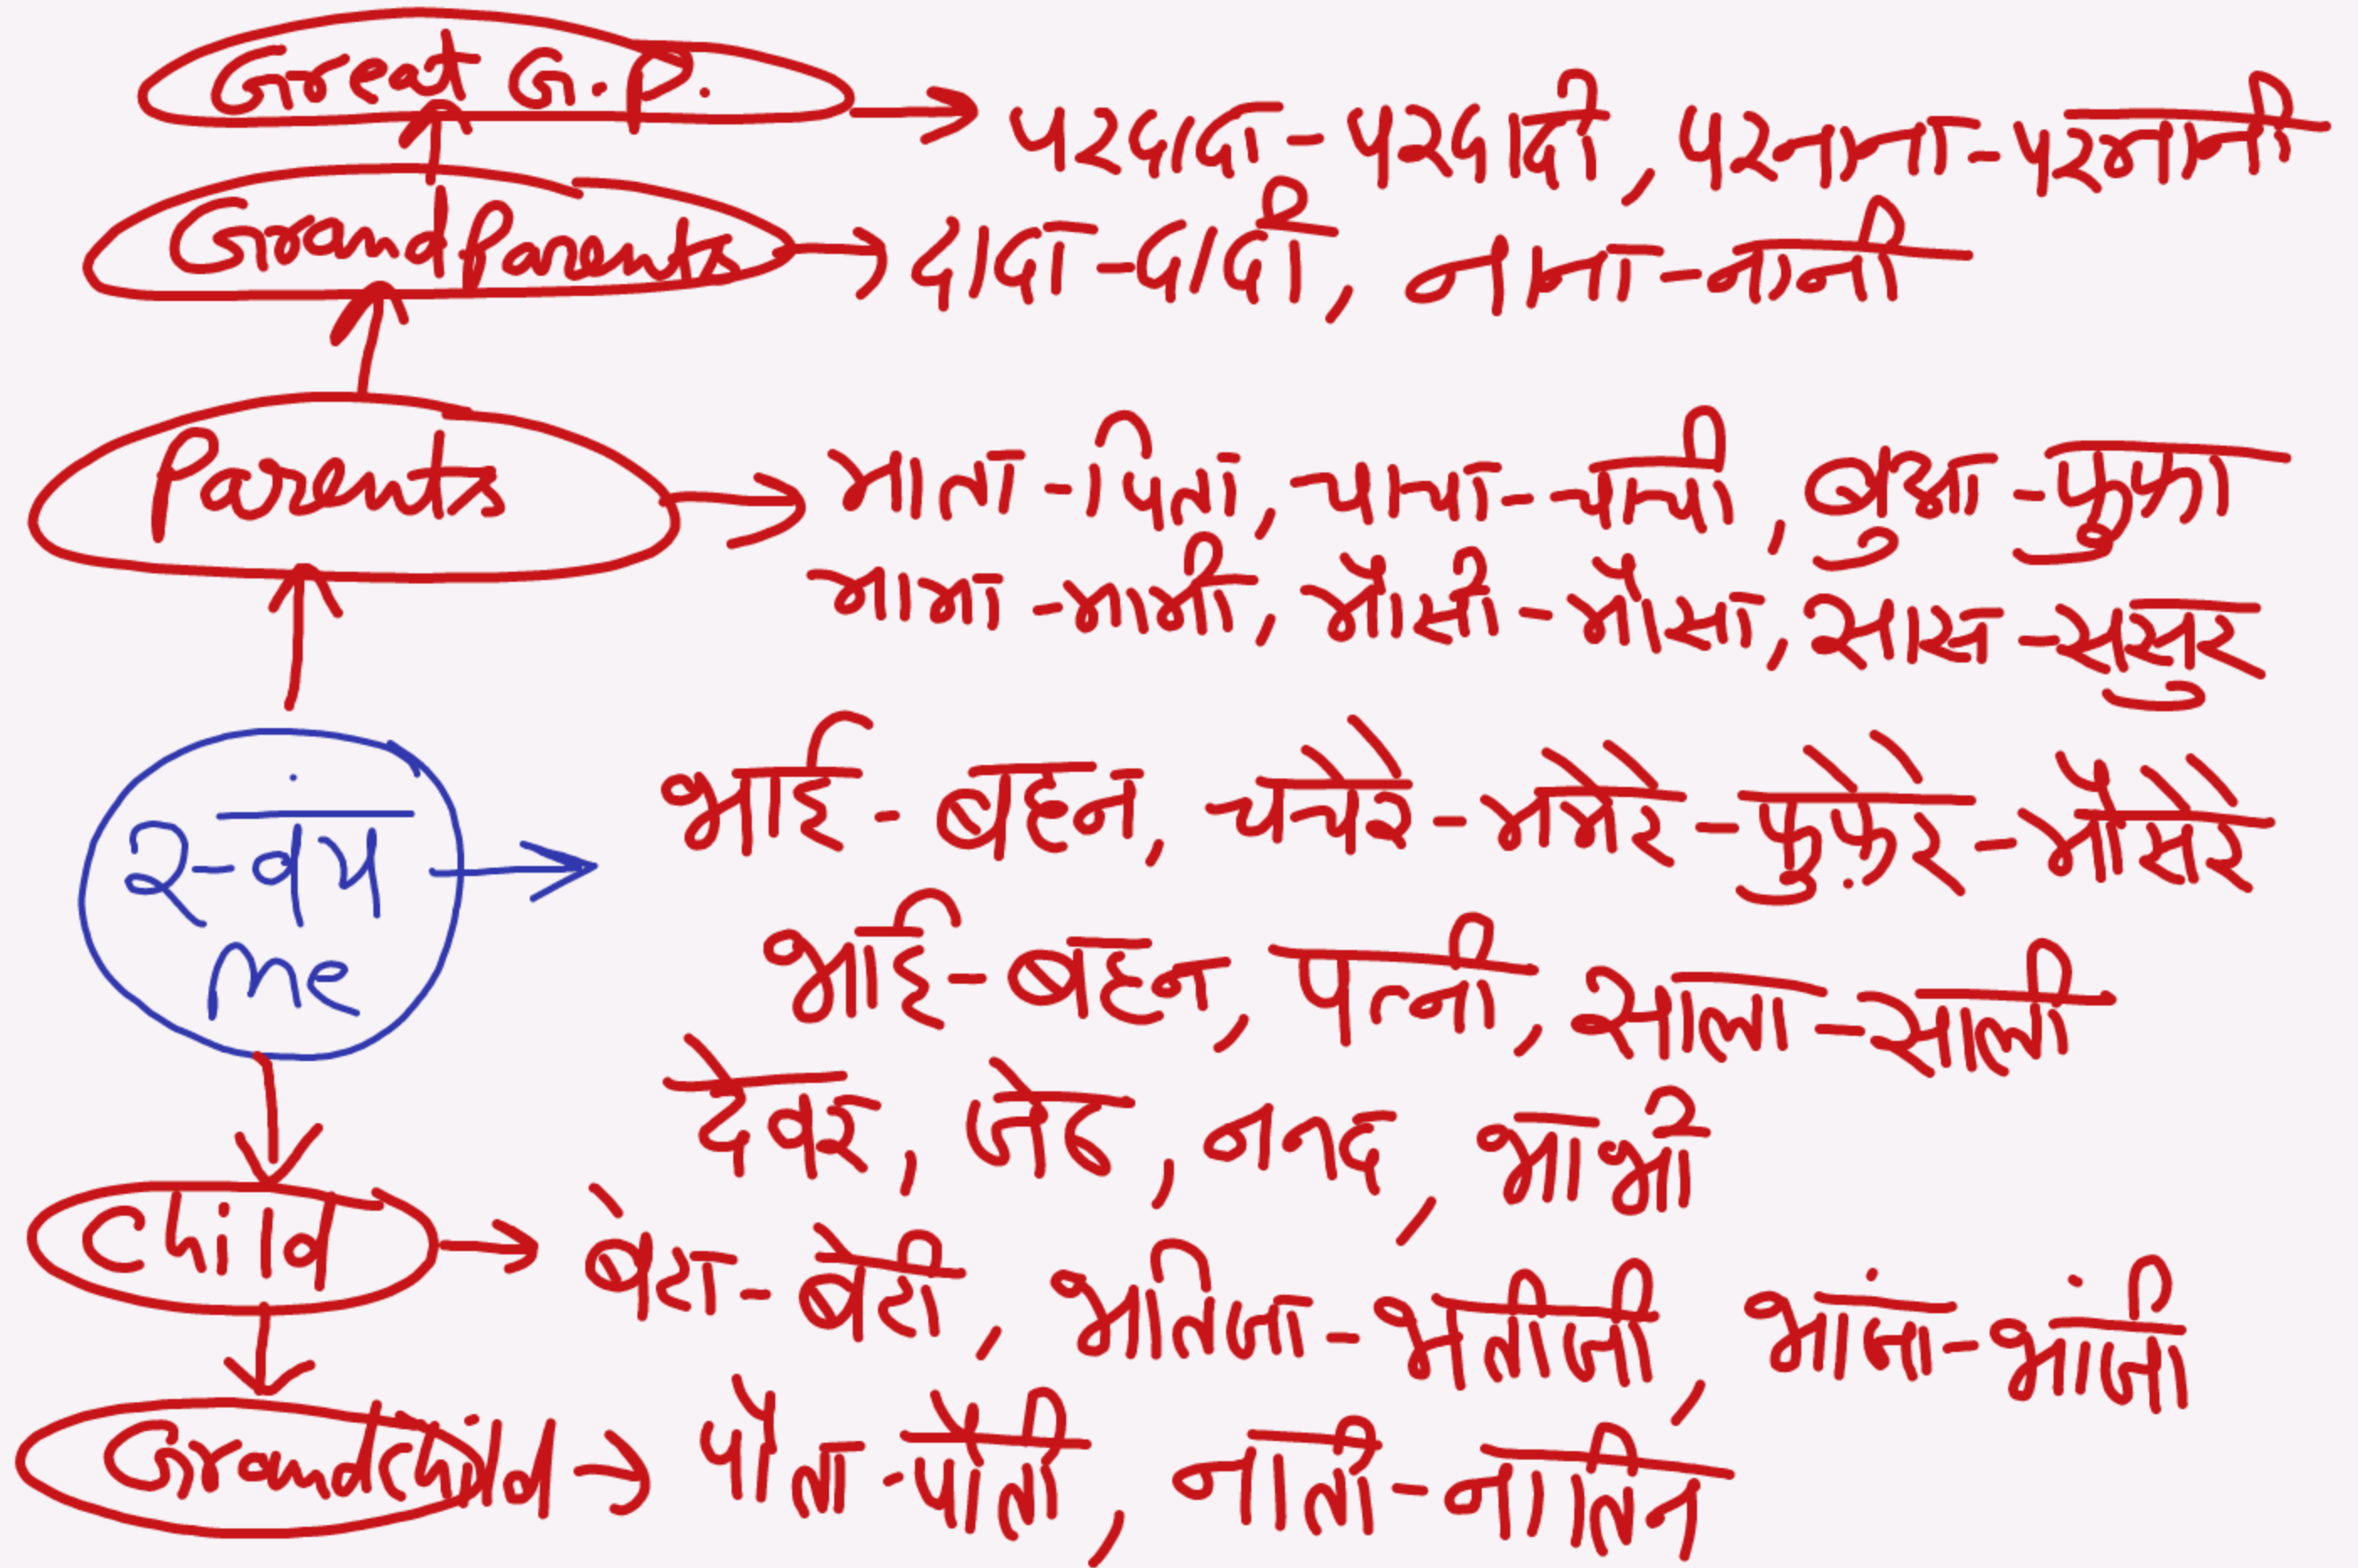 Great G.P. → परदादा-परदादी, परनाना-परनानी
Grandparents → दादा-दादी, नाना-नानी
Parents → माता-पिता, चाचा-चाची, बुआ-फुफा
मामा-मामी, मौसी-मौसा, सास-ससुर
स्वयं me → भाई-बहन, चचेरे-ममेरे-फुफ़ेरे-मौसेरे
भाई-बहन, पत्नी, साला-साली
देवर, जेठ, ननद, भाभी
Child → बेटा-बेटी, भतिजा-भतीजी, भांजा-भांजी
Grandchild → पोता-पोती, नाती-नातिन